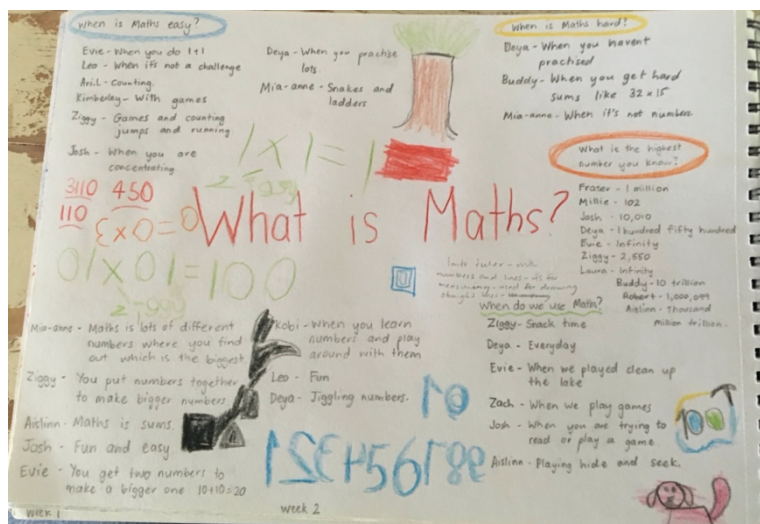 When is Maths easy?
Evie - When you do 1+1
Leo - When it's not a challenge
Counting.
Kimberley - With games
Ziggy - Games and counting
jumps and running
Josh - When you are
concentrating
Deya - When you practise
lots.
Mia-anne - Snakes and
ladders
When is Maths hard?
Deya - When you havent
practised
Buddy - When you get hard
sums like 32 x 15
Mia-anne - When it's not numbers.
What is the highest
number you know?
Fraser - 1 million
Millie - 102
Josh - 10,010
Deya - 1 hundred fifty hundred
Evie - Infinity
Ziggy - 2,550
Laura - Infinity
Buddy - 10 trillion
Robert - 1,000,099
Aislinn - Thousand
million trillion.
1 x 1 = 1
3110 450
110
3 x 0 = 0
What is Maths?
01 x 01 = 100
numbers and lines - its for
measuring - used for drawing
straight lines -
When do we use Maths?
Ziggy - Snack time
Deya - Everyday
Evie - When we played clean up
the lake
Zach - When we play games
Josh - When you are trying to
read or play a game.
Aislinn - Playing hide and seek.
Mia-anne - Maths is lots of different
numbers where you find
out which is the biggest
Ziggy - You put numbers together
to make bigger numbers
Aislinn - Maths is sums.
Josh - Fun and easy
Evie - You get two numbers to
make a bigger one 10+10=20
Kobi - When you learn
numbers and play
around with them
Leo - Fun
Deya - Jiggling numbers.
Week 1
Week 2